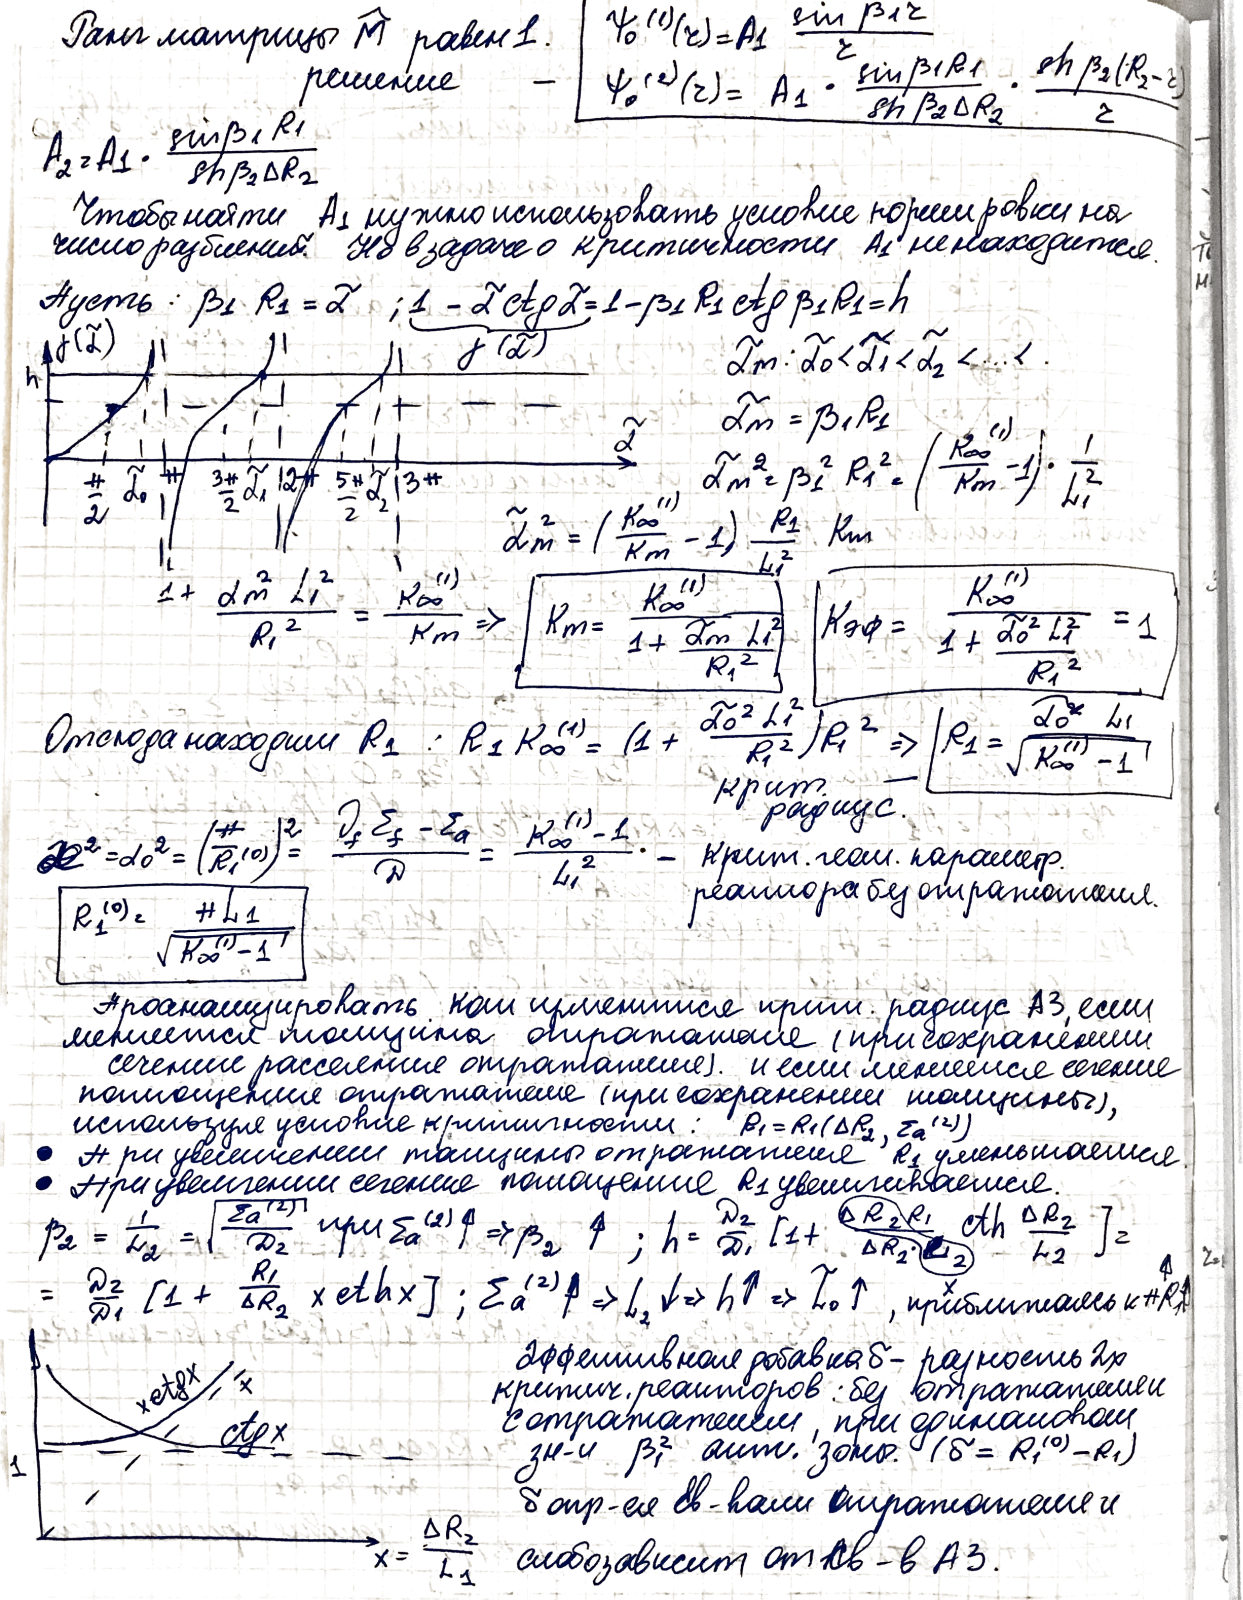 Ранг матрицы M̂ равен 1.
решение —
Ψ₀⁽¹⁾(r) = A₁ sin β₁r / r
Ψ₀⁽²⁾(r) = A₁ · sin β₁R₁ / sh β₂ΔR₂ · sh β₂(R₂-r) / r
A₂ = A₁ · sin β₁R₁ / sh β₂ΔR₂
Чтобы найти A₁ нужно использовать условие нормировки на
число разбиений. Но в задаче о критичности A₁ не находится.
Пусть: β₁R₁ = α̃ ; 1 - α̃ ctg α̃ = 1 - β₁R₁ ctg β₁R₁ = h
f(α̃)
f(α̃)
h
α̃
π/2 α̃₀ π 3π/2 α̃₁ 2π 5π/2 α̃₂ 3π
α̃m : α̃₀ < α̃₁ < α̃₂ < ... < .
α̃m = β₁R₁
α̃m² = β₁² R₁² = (K∞⁽¹⁾/Km - 1) · 1/L₁²
α̃m² = (K∞⁽¹⁾/Km - 1) R₁/L₁² Km
1 + αm² L₁² / R₁² = K∞⁽¹⁾ / Km ⇒ Km = K∞⁽¹⁾ / (1 + α̃m L₁² / R₁²)
Kэф = K∞⁽¹⁾ / (1 + α̃₀² L₁² / R₁²) = 1
Отсюда находим R₁ : R₁ K∞⁽¹⁾ = (1 + α̃₀² L₁² / R₁²) R₁² ⇒ R₁ = α̃₀ L₁ / √(K∞⁽¹⁾ - 1) —
крит.
радиус.
æ² = α₀² = (π / R₁⁽⁰⁾)² = (ν_f Σ_f - Σa) / D = (K∞⁽¹⁾ - 1) / L₁² . - крит. геом. параметр.
реактора без отражателя.
R₁⁽⁰⁾ = π L₁ / √(K∞⁽¹⁾ - 1)
Проанализировать как изменится крит. радиус АЗ, если
меняется толщина отражателя (при сохранении
сечения рассеяния отражателя). и если меняется сечение
поглощения отражателя (при сохранении толщины),
используя условие критичности: R₁ = R₁(ΔR₂, Σa⁽²⁾)
• При увеличении толщины отражателя R₁ уменьшается.
• При увеличении сечения поглощения R₁ увеличивается.
β₂ = 1/L₂ = √(Σa⁽²⁾/D₂) при Σa⁽²⁾↑ ⇒ β₂ ↑ ; h = D₂/D₁ [1 + ΔR₂R₁ / ΔR₂·L₂ cth ΔR₂/L₂ ] =
x
= D₂/D₁ [1 + R₁/ΔR₂ x cth x] ; Σa⁽²⁾↑ ⇒ L₂↓ ⇒ h↑ ⇒ α̃₀↑ , приближаясь к π R₁↑
x ctg x
x
ctg x
1
x = ΔR₂/L₁
Эффективная добавка δ - разность 2х
критич. реакторов : без отражателя и
с отражателем, при одинаковом
зн-и β₁² акт. зоны. (δ = R₁⁽⁰⁾ - R₁)
δ опр-ся св-вами отражателя и
слабо зависит от св-в АЗ.